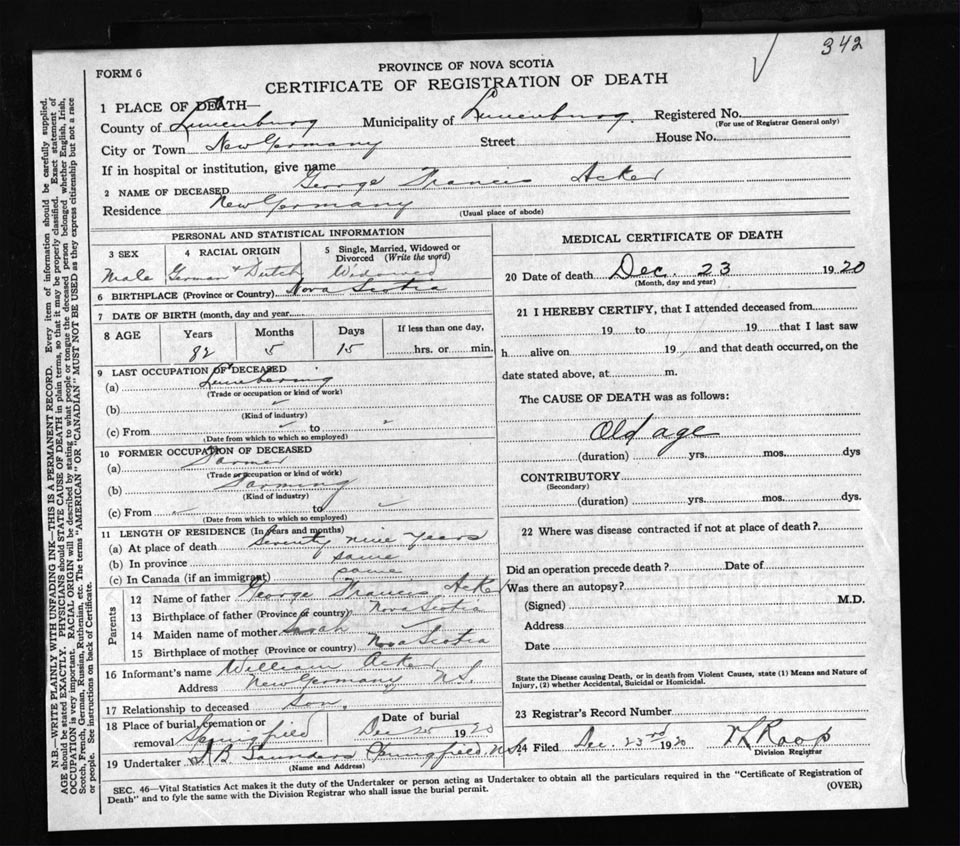 342
FORM 6
PROVINCE OF NOVA SCOTIA
CERTIFICATE OF REGISTRATION OF DEATH
1 PLACE OF DEATH—
County of Lunenburg Municipality of Lunenburg. Registered No.
(For use of Registrar General only)
City or Town New Germany Street House No.
If in hospital or institution, give name
2 NAME OF DECEASED George Francis Acker
Residence New Germany
(Usual place of abode)
PERSONAL AND STATISTICAL INFORMATION
3 SEX
Male
4 RACIAL ORIGIN
German & Dutch
5 Single, Married, Widowed or
Divorced (Write the word)
Widowed
6 BIRTHPLACE (Province or Country) Nova Scotia
7 DATE OF BIRTH (month, day and year)
8 AGE Years Months Days If less than one day,
82 5 15 hrs. or min.
9 LAST OCCUPATION OF DECEASED
(a) Lumbering
(Trade or occupation or kind of work)
(b)
(Kind of industry)
(c) From to
(Date from which to which so employed)
10 FORMER OCCUPATION OF DECEASED
(a) Farmer
(Trade or occupation or kind of work)
(b) Farming
(Kind of industry)
(c) From to
(Date from which to which so employed)
11 LENGTH OF RESIDENCE (In years and months)
(a) At place of death Seventy nine years
(b) In province same
(c) In Canada (if an immigrant) same
Parents
12 Name of father George Francis Acker
13 Birthplace of father (Province or country) Nova Scotia
14 Maiden name of mother Sarah
15 Birthplace of mother (Province or country) Nova Scotia
16 Informant's name William Acker
Address New Germany N.S.
17 Relationship to deceased Son.
18 Place of burial, cremation or Date of burial
removal Springfield Dec 25 1920
19 Undertaker Springfield, N.S.
(Name and Address)
MEDICAL CERTIFICATE OF DEATH
20 Date of death Dec. 23 1920
(Month, day and year)
21 I HEREBY CERTIFY, that I attended deceased from
19 to 19 that I last saw
h alive on 19 and that death occurred, on the
date stated above, at m.
The CAUSE OF DEATH was as follows:
Old age
(duration) yrs. mos. dys
CONTRIBUTORY
(Secondary)
(duration) yrs. mos. dys.
22 Where was disease contracted if not at place of death?
Did an operation precede death? Date of
Was there an autopsy?
(Signed) M.D.
Address
Date
State the Disease causing Death, or in death from Violent Causes, state (1) Means and Nature of
Injury, (2) whether Accidental, Suicidal or Homicidal.
23 Registrar's Record Number
24 Filed Dec. 23rd 1920
Division Registrar
SEC. 46—Vital Statistics Act makes it the duty of the Undertaker or person acting as Undertaker to obtain all the particulars required in the "Certificate of Registration of
Death" and to fyle the same with the Division Registrar who shall issue the burial permit.
(OVER)
N.B.—WRITE PLAINLY WITH UNFADING INK—THIS IS A PERMANENT RECORD. Every item of information should be carefully supplied.
AGE should be stated EXACTLY. PHYSICIANS should STATE CAUSE OF DEATH in plain terms, so that it may be properly classified. Exact statement of
OCCUPATION is very important. RACIAL ORIGIN will be described by stating to what people or tongue the deceased person belonged whether English, Irish,
Scotch, French, German, Russian, Ruthenian, etc. The terms "AMERICAN" OR "CANADIAN" MUST NOT BE USED as they express citizenship but not a race
or people. See instructions on back of Certificate.